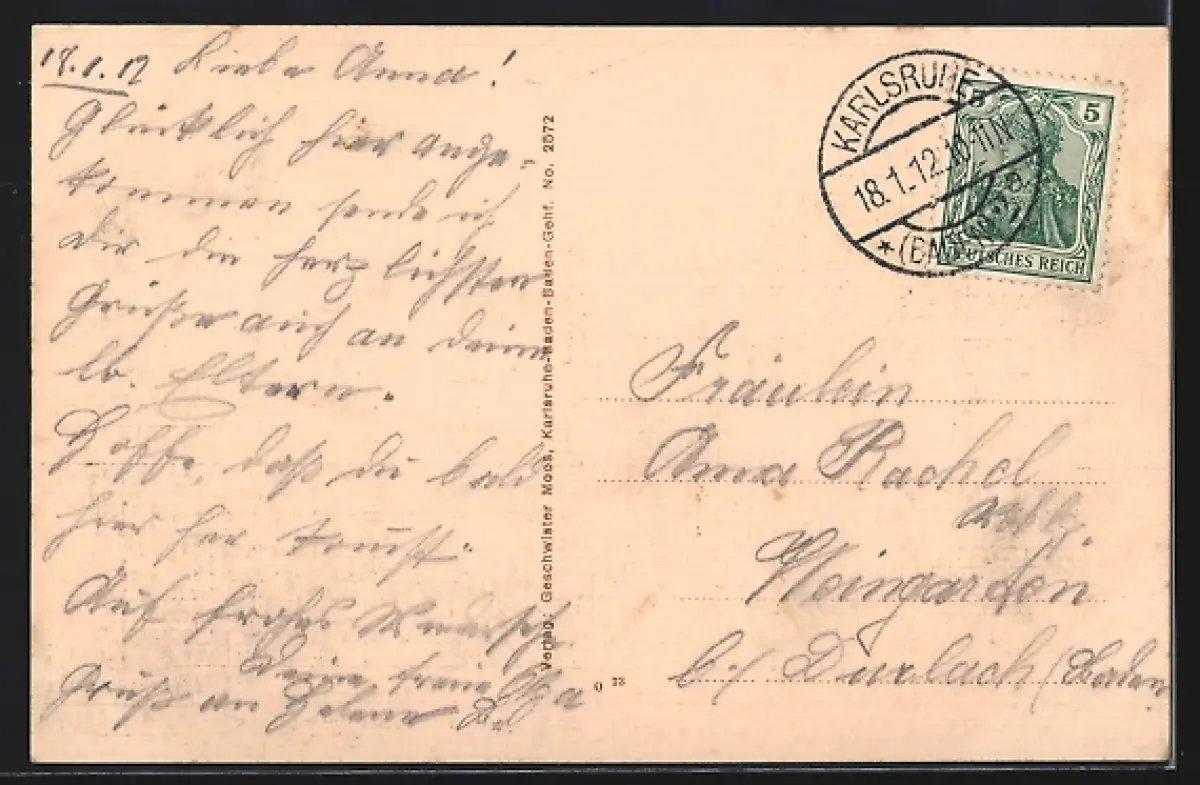 18.1.12 Liebe Anna!
Glücklich hier ange-
kommen sende ich
Dir die herzlichsten
Grüße auch an Deine
lb. Eltern.
Hoffe, daß du bald
hier her kommst.
Auf frohes Wiederseh
Deine treue
Gruß an Helene
Verlag: Geschwister Moos, Karlsruhe-Baden-Baden-Gehf. No. 2572
0 73
KARLSRUHE
18.1.12.10-11N.
★ (BADEN) 2a.
5
DEUTSCHES REICH
Fräulein
Anna Rachel
Weingarten
b/ Durlach (Baden